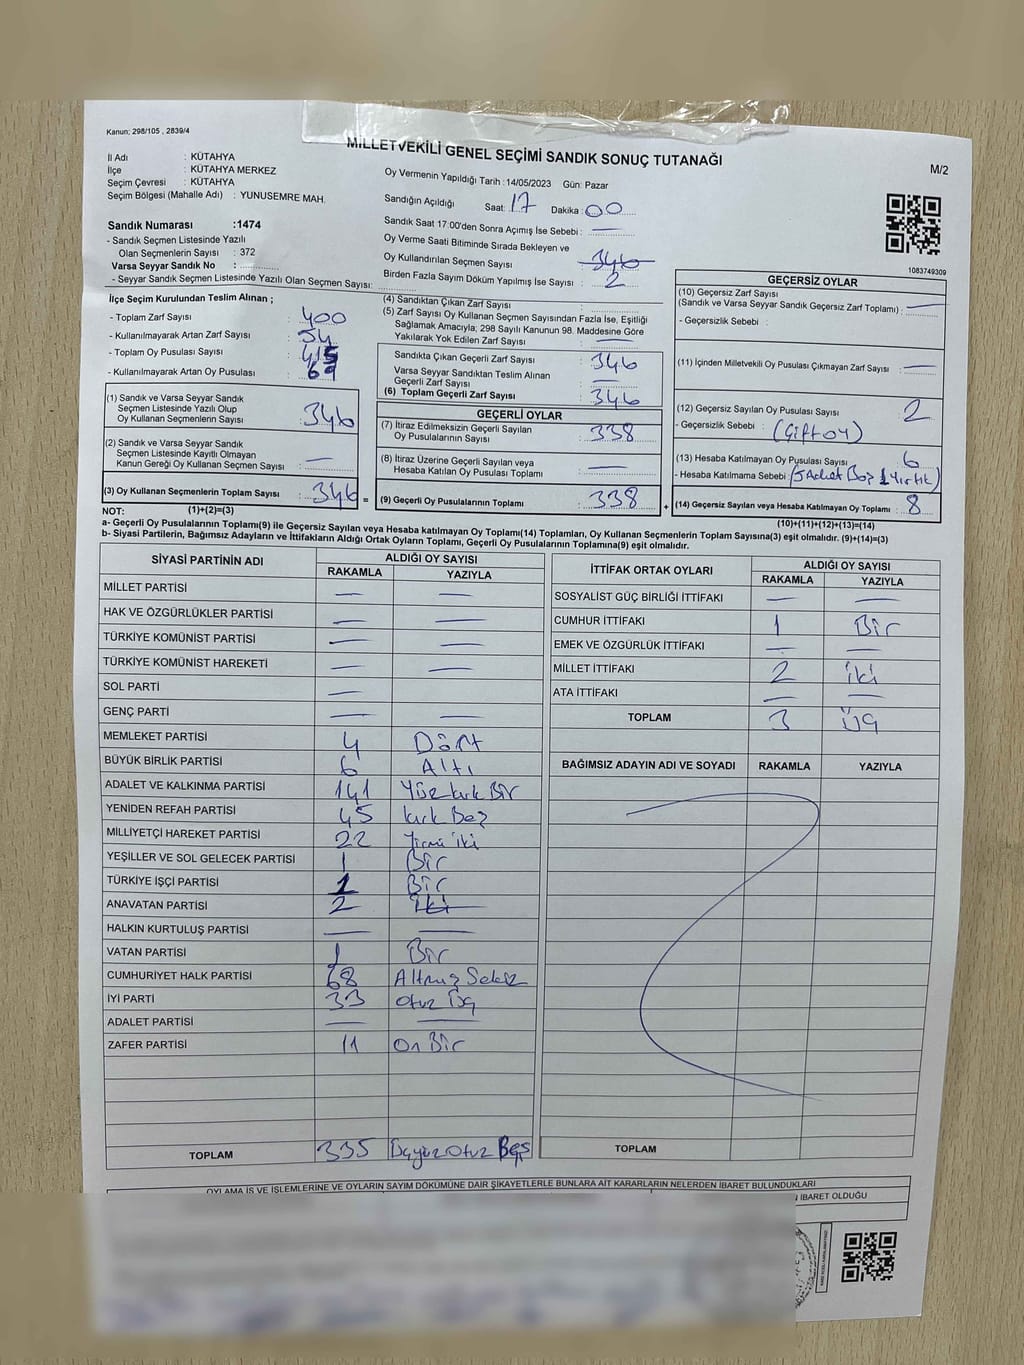 Kanun; 298/105 , 2839/4
MİLLETVEKİLİ GENEL SEÇİMİ SANDIK SONUÇ TUTANAĞI
M/2
İl Adı : KÜTAHYA
İlçe : KÜTAHYA MERKEZ
Seçim Çevresi : KÜTAHYA
Seçim Bölgesi (Mahalle Adı) : YUNUSEMRE MAH.
Sandık Numarası :1474
- Sandık Seçmen Listesinde Yazılı
Olan Seçmenlerin Sayısı : 372
Varsa Seyyar Sandık No :
- Seyyar Sandık Seçmen Listesinde Yazılı Olan Seçmen Sayısı:
Oy Vermenin Yapıldığı Tarih : 14/05/2023 Gün: Pazar
Sandığın Açıldığı Saat: 17 Dakika : 00
Sandık Saat 17:00'den Sonra Açımış İse Sebebi : —
Oy Verme Saati Bitiminde Sırada Bekleyen ve
Oy Kullandırılan Seçmen Sayısı : 346
Birden Fazla Sayım Döküm Yapılmış İse Sayısı : 2
1083749309
İlçe Seçim Kurulundan Teslim Alınan ;
- Toplam Zarf Sayısı : 400
- Kullanılmayarak Artan Zarf Sayısı : 54
- Toplam Oy Pusulası Sayısı : 415
- Kullanılmayarak Artan Oy Pusulası : 69
(1) Sandık ve Varsa Seyyar Sandık
Seçmen Listesinde Yazılı Olup
Oy Kullanan Seçmenlerin Sayısı : 346
(2) Sandık ve Varsa Seyyar Sandık
Seçmen Listesinde Kayıtlı Olmayan
Kanun Gereği Oy Kullanan Seçmen Sayısı : —
(3) Oy Kullanan Seçmenlerin Toplam Sayısı : 346 =
(4) Sandıktan Çıkan Zarf Sayısı :
(5) Zarf Sayısı Oy Kullanan Seçmen Sayısından Fazla İse, Eşitliği
Sağlamak Amacıyla; 298 Sayılı Kanunun 98. Maddesine Göre
Yakılarak Yok Edilen Zarf Sayısı : —
Sandıkta Çıkan Geçerli Zarf Sayısı : 346
Varsa Seyyar Sandıktan Teslim Alınan
Geçerli Zarf Sayısı : —
(6) Toplam Geçerli Zarf Sayısı : 346
GEÇERLİ OYLAR
(7) İtiraz Edilmeksizin Geçerli Sayılan
Oy Pusulalarının Sayısı : 338
(8) İtiraz Üzerine Geçerli Sayılan veya
Hesaba Katılan Oy Pusulası Toplamı : —
(9) Geçerli Oy Pusulalarının Toplamı : 338 +
GEÇERSİZ OYLAR
(10) Geçersiz Zarf Sayısı
(Sandık ve Varsa Seyyar Sandık Geçersiz Zarf Toplamı) : —
- Geçersizlik Sebebi :
(11) İçinden Milletvekili Oy Pusulası Çıkmayan Zarf Sayısı : —
(12) Geçersiz Sayılan Oy Pusulası Sayısı : 2
- Geçersizlik Sebebi : (Çift oy)
(13) Hesaba Katılmayan Oy Pusulası Sayısı : 6
- Hesaba Katılmama Sebebi : (5 Adet Boş 1 Yırtık)
(14) Geçersiz Sayılan veya Hesaba Katılmayan Oy Toplamı : 8
NOT: (1)+(2)=(3)
(10)+(11)+(12)+(13)=(14)
a- Geçerli Oy Pusulalarının Toplamı(9) ile Geçersiz Sayılan veya Hesaba katılmayan Oy Toplamı(14) Toplamları, Oy Kullanan Seçmenlerin Toplam Sayısına(3) eşit olmalıdır. (9)+(14)=(3)
b- Siyasi Partilerin, Bağımsız Adayların ve İttifakların Aldığı Ortak Oyların Toplamı, Geçerli Oy Pusulalarının Toplamına(9) eşit olmalıdır.
SİYASİ PARTİNİN ADI ALDIĞI OY SAYISI
RAKAMLA YAZIYLA
MİLLET PARTİSİ — —
HAK VE ÖZGÜRLÜKLER PARTİSİ — —
TÜRKİYE KOMÜNİST PARTİSİ — —
TÜRKİYE KOMÜNİST HAREKETİ — —
SOL PARTİ —
GENÇ PARTİ — —
MEMLEKET PARTİSİ 4 Dört
BÜYÜK BİRLİK PARTİSİ 6 Altı
ADALET VE KALKINMA PARTİSİ 141 Yüz kırk Bir
YENİDEN REFAH PARTİSİ 45 kırk Beş
MİLLİYETÇİ HAREKET PARTİSİ 22 Yirmi iki
YEŞİLLER VE SOL GELECEK PARTİSİ 1 Bir
TÜRKİYE İŞÇİ PARTİSİ 1 Bir
ANAVATAN PARTİSİ 2 İki
HALKIN KURTULUŞ PARTİSİ — —
VATAN PARTİSİ 1 Bir
CUMHURİYET HALK PARTİSİ 68 Altmış Sekiz
İYİ PARTİ 33 Otuz Üç
ADALET PARTİSİ — —
ZAFER PARTİSİ 11 On Bir
TOPLAM 335 Üçyüz Otuz Beş
İTTİFAK ORTAK OYLARI ALDIĞI OY SAYISI
RAKAMLA YAZIYLA
SOSYALİST GÜÇ BİRLİĞİ İTTİFAKI — —
CUMHUR İTTİFAKI 1 Bir
EMEK VE ÖZGÜRLÜK İTTİFAKI — —
MİLLET İTTİFAKI 2 iki
ATA İTTİFAKI — —
TOPLAM 3 Üç
BAĞIMSIZ ADAYIN ADI VE SOYADI RAKAMLA YAZIYLA
TOPLAM
OYLAMA İŞ VE İŞLEMLERİNE VE OYLARIN SAYIM DÖKÜMÜNE DAİR ŞİKAYETLERLE BUNLARA AİT KARARLARIN NELERDEN İBARET BULUNDUKLARI
İBARET OLDUĞU